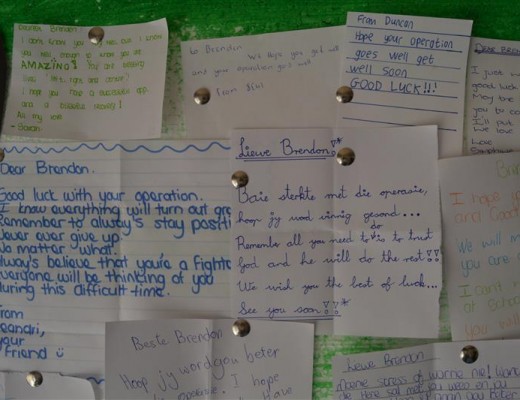 Dearest Brendon!
I don't know you
well, but I know
you well enough to know you are
AMAZING! You are keeping
I hope you have a successful op.
All my love
- Sarah
to Brendon
We hope you get well
and your operation goes well
from
From Duncan
Hope your operation
goes well get
well soon
GOOD LUCK!!!
Dear Bre
I just w
good luck
May the
you to
I'll put
we love
Love
Dear Brendon.
Good luck with your operation.
I know everything will turn out gre
Remember to always's stay positi
Never ever give up
No matter what!
Always's believe that you're a fighte
Everyone will be thinking of you
during this difficult time.
From
eandri,
your
Friend
Liewe Brendon!*
Baie sterkte met die operasie,
hoop jy word vinnig gesond...
Remember all you need to do is to trust
God and he will do the rest!!
We wish you the best of luck...
See you soon!!*
I hope yo
and Good
We will m
you are
I can't
at School
You will
Beste Brendon
Hoop jy word gou beter
I hope
Have
Liewe Brendon